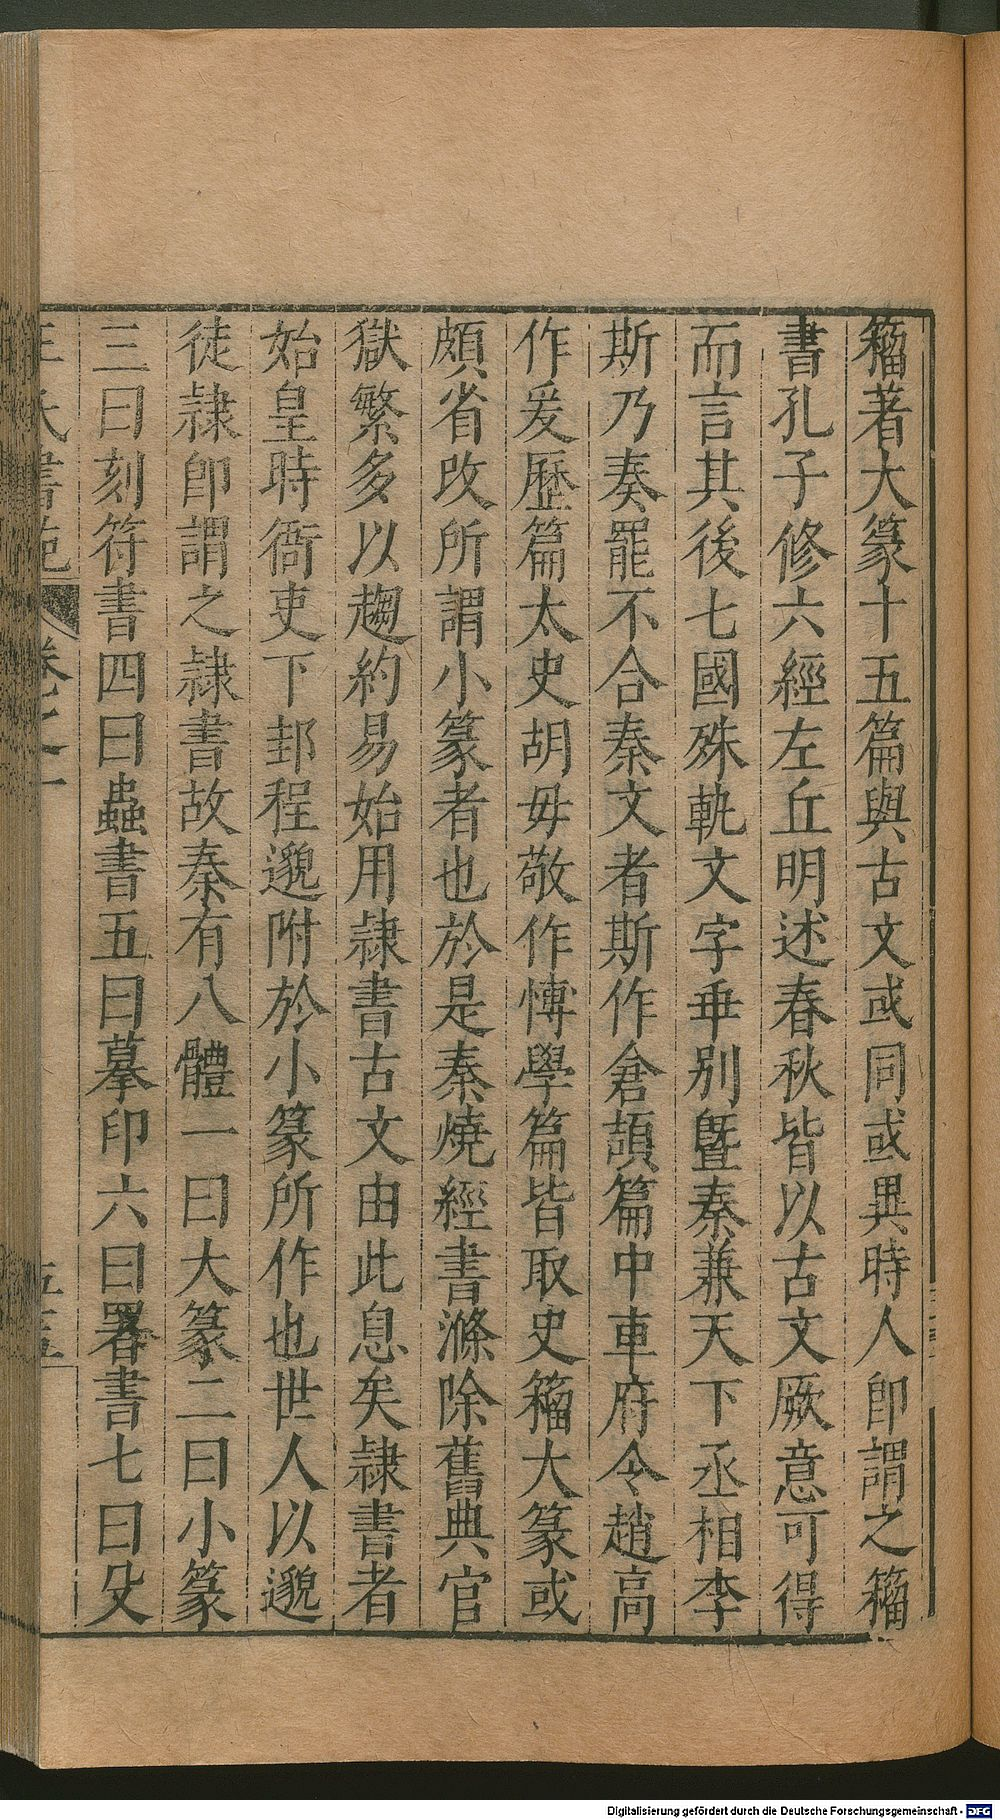 籀著大篆十五篇與古文或同或異時人卽謂之籀
書孔子修六經左丘明述春秋皆以古文厥意可得
而言其後七國殊軌文字乖别曁秦兼天下丞相李
斯乃奏罷不合秦文者斯作倉頡篇中車府令趙高
作爰歷篇太史胡毋敬作愽學篇皆取史籀大篆或
頗省改所謂小篆者也於是秦燒經書滌除舊典官
獄繁多以趨約易始用隷書古文由此息矣隷書者
始皇時衙吏下邽程邈附於小篆所作也世人以邈
徒隷卽謂之隷書故秦有八體一曰大篆二曰小篆
三曰刻符書四曰蟲書五曰摹印六曰署書七曰殳
王氏書苑
卷之一
Digitalisierung gefördert durch die Deutsche Forschungsgemeinschaft - DFG